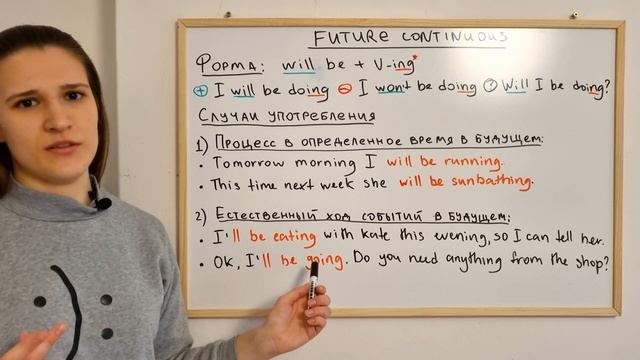 FUTURE CONTINUOUS
ФОРМА: will be + V-ing*
+ I will be doing - I won't be doing ? Will I be doing?
СЛУЧАИ УПОТРЕБЛЕНИЯ
1) ПРОЦЕСС В ОПРЕДЕЛЕННОЕ ВРЕМЯ В БУДУЩЕМ:
• Tomorrow morning I will be running.
• This time next week she will be sunbathing.
2) ЕСТЕСТВЕННЫЙ ХОД СОБЫТИЙ В БУДУЩЕМ:
• I'll be eating with Kate this evening, so I can tell her.
• OK, I'll be going. Do you need anything from the shop?